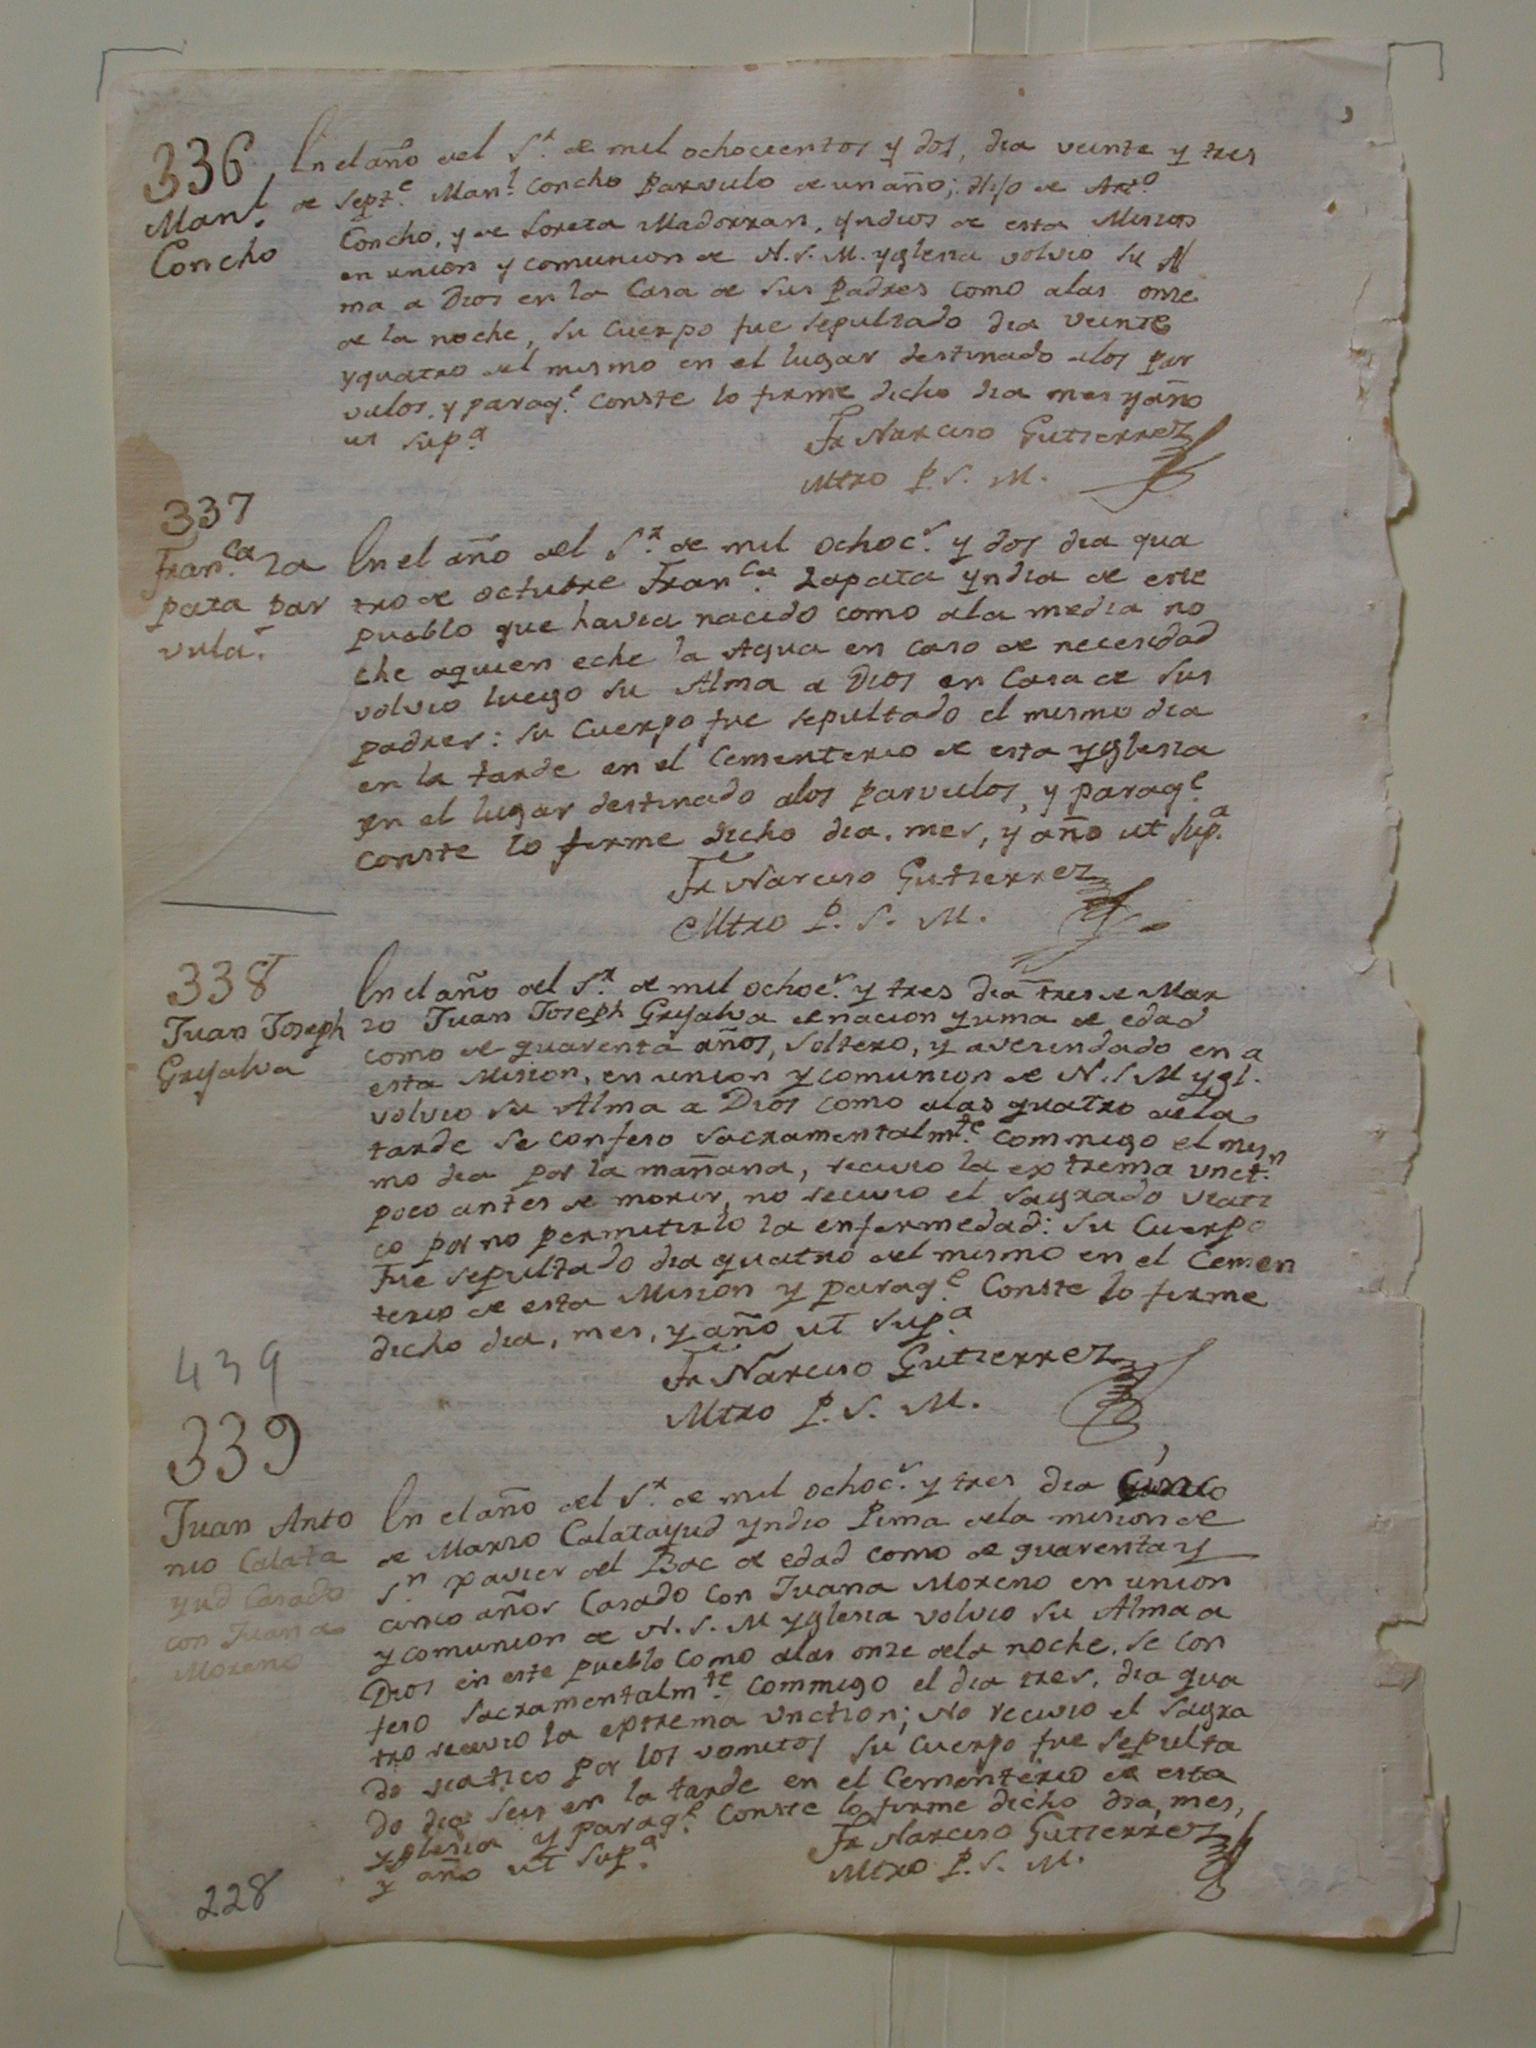 336
Man.l
Concho
En el año del S.r de mil ochocientos y dos, dia veinte y tres
de Sept.e Man.l Concho Parvulo de un año; Hijo de Ant.o
Concho, y de Loreta Madorran, yndios de esta Mision
en union y comunion de N. S. M. yglesia volvio su Al
ma a Dios en la Casa de sus padres como alas onse
de la noche, su Cuerpo fue sepultado dia veinte
y quatro del mismo en el lugar destinado alos par
vulos, y paraq.e conste lo firme dicho dia mes y año
ut sup.a
Fr Narciso Gutierrez
Mtro P. S. M.
337
Fran.ca Za
pata par
vula.
En el año del S.r de mil ochoc.s y dos dia qua
tro de octubre Fran.ca Zapata yndia de este
pueblo que havia nacido como ala media no
che aquien eche la Agua en caso de necesidad
volvio luego su Alma a Dios en Casa de sus
padres: su Cuerpo fue sepultado el mismo dia
en la tarde en el Cementerio de esta yglesia
en el lugar destinado alos parvulos, y paraq.e
conste lo firme dicho dia, mes, y año ut sup.a
Fr Narciso Gutierrez
Mtro P. S. M.
338
Juan Joseph
Grijalva
En el año del S.r de mil ochoc.s y tres dia tres de Mar
zo Juan Joseph Grijalva de nacion yuma de edad
como de quarenta años, soltero, y avecindado en a
esta Mision, en union y comunion de N. S. M ygl.
volvio su Alma a Dios como alas quatro dela
tarde se confeso sacramentalm.te commigo el mis
mo dia por la mañana, recivio la extrema unct.n
poco antes de morir, no recivio el sagrado viati
co por no permitirlo la enfermedad: su Cuerpo
fue sepultado dia quatro del mismo en el Cemen
terio de esta Mision y paraq.e Conste lo firme
dicho dia, mes, y año ut sup.a
Fr Narciso Gutierrez
Mtro P. S. M.
439
339
Juan Anto
nio Calata
yud Casado
con Juana
Moreno
En el año del S.r de mil ochoc.s y tres dia cinco
de Marzo Calatayud yndio Pima dela mision de
S.n Xavier del Bac de edad como de quarenta y
cinco años Casado con Juana Moreno en union
y comunion de N. S. M yglesia volvio su Alma a
Dios en este pueblo como alas onze dela noche. se con
feso sacramentalm.te commigo el dia tres, dia qua
tro recivio la extrema unction; No recivio el sagra
do viatico por los vomitos su cuerpo fue sepulta
do dia seis en la tarde en el Cementerio de esta
yglesia y paraq.e Conste lo firme dicho dia, mes,
y año ut sup.a
Fr Narciso Gutierrez
Mtro P. S. M.
228